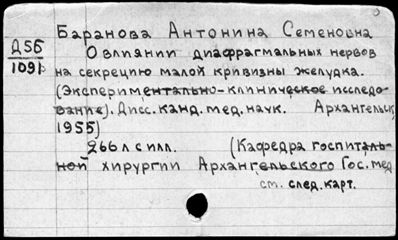 Баранова Антонина Семеновна
Д55
1091
О влиянии диафрагмальных нервов
на секрецию малой кривизны желудка.
(Экспериментально-клиническое исследо-
вание). Дисс. канд. мед. наук. Архангельск
1955)
266 л с илл. (Кафедра госпиталь-
ной хирургии Архангельского Гос. мед
см. след. карт.